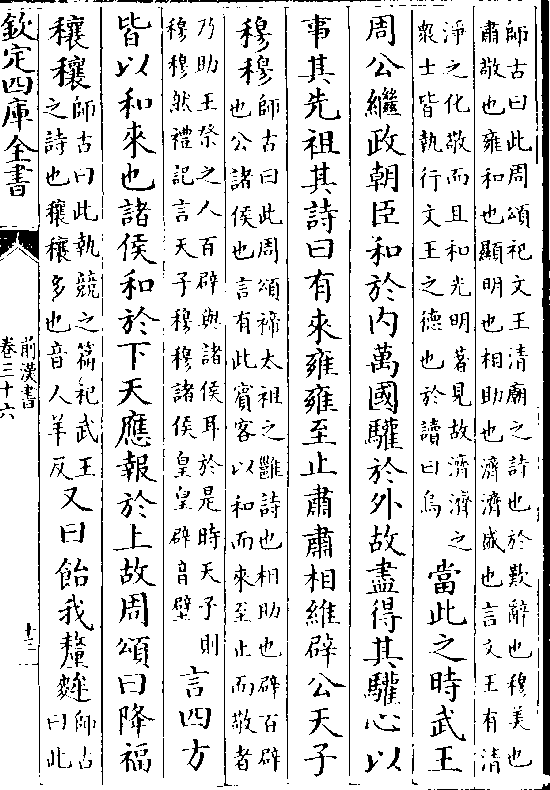 師古曰此周頌祀文王清廟之詩也於歎辭也穆美也
肅敬也雍和也顯明也相助也濟濟盛也言文王有清
淨之化敬而且和光明著見故濟濟之
衆士皆執行文王之德也於讀曰烏
當此之時武王
周公繼政朝臣和於内萬國驩於外故盡得其驩心以
事其先祖其詩曰有來雍雍至止肅肅相維辟公天子
穆穆
師古曰此周頌禘太祖之雝詩也相助也辟百辟
也公諸侯也言有此賓客以和而來至止而敬者
乃助王祭之人百辟與諸侯耳於是時天子則
穆穆然禮記言天子穆穆諸侯皇皇辟音璧
言四方
皆以和來也諸侯和於下天應報於上故周頌曰降福
穰穰
師古曰此執競之篇祀武王
之詩也穰穰多也音人羊反
又曰飴我釐麰
師古
曰此
欽定四庫全書
前漢書
卷三十六
十三